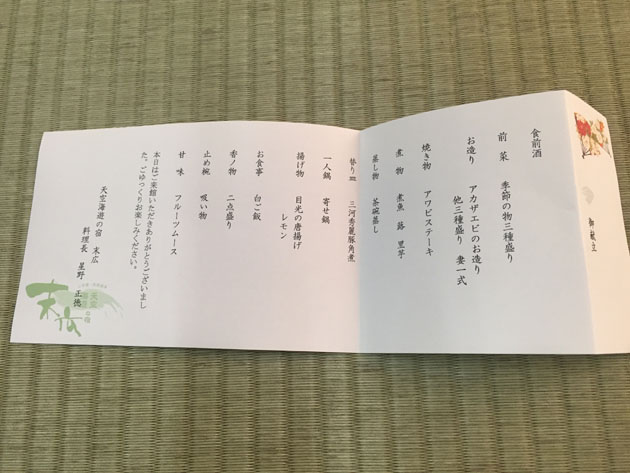 御献立
食前酒
前菜 季節の物三種盛り
お造り アカザエビのお造り
他三種盛り 妻一式
焼き物 アワビステーキ
煮物 煮魚 蕗 里芋
蒸し物 茶碗蒸し
替り皿 三河秀麗豚角煮
一人鍋 寄せ鍋
揚げ物 目光の唐揚げ
レモン
お食事 白ご飯
香ノ物 二点盛り
止め椀 吸い物
甘味 フルーツムース
本日はご来館いただきありがとうございまし
た。ごゆっくりお楽しみください。
天空海遊の宿 末広
料理長 星野 正徳
末広